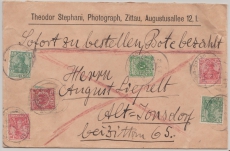 Theodor Stephani, Photograph, Zittau, Augustusallee 12, I.
Sofort zu bestellen, Bote bezahlt
Herrn
August Liepelt
Alt-Jonsdorf
bei Zittau 65.